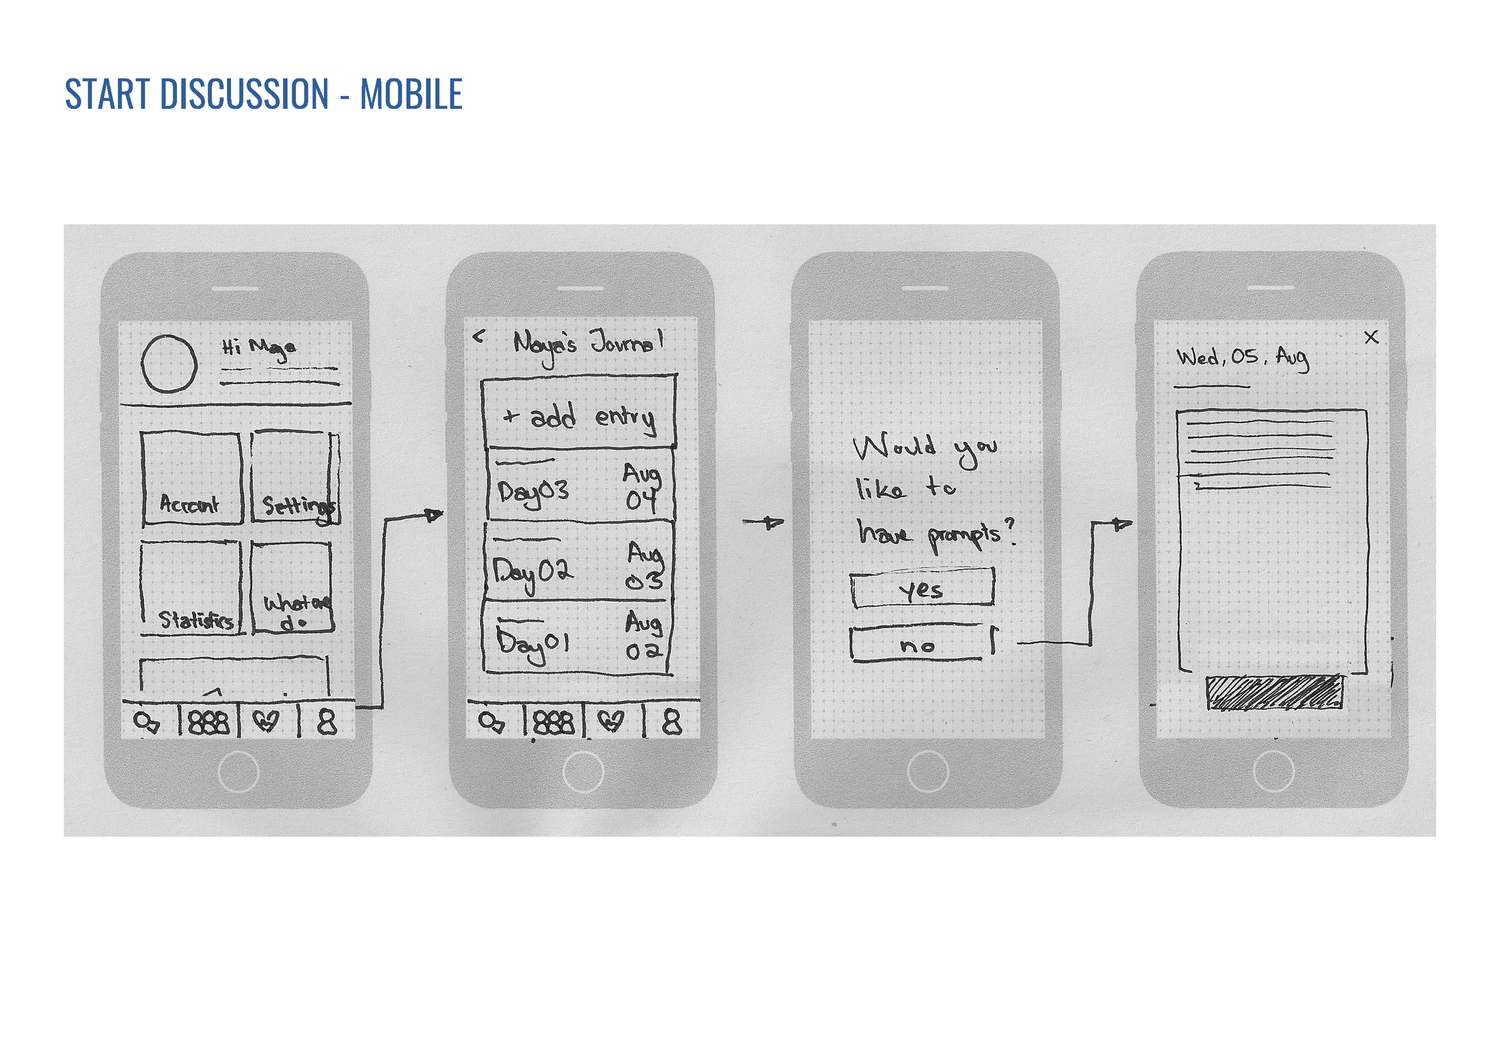 START DISCUSSION - MOBILE
Hi Maya
Account
Settings
Statistics
What we
do
< Maya's Journal
+ add entry
Day03 Aug
04
Day02 Aug
03
Day01 Aug
02
Would you
like to
have prompts?
yes
no
X
Wed, 05, Aug